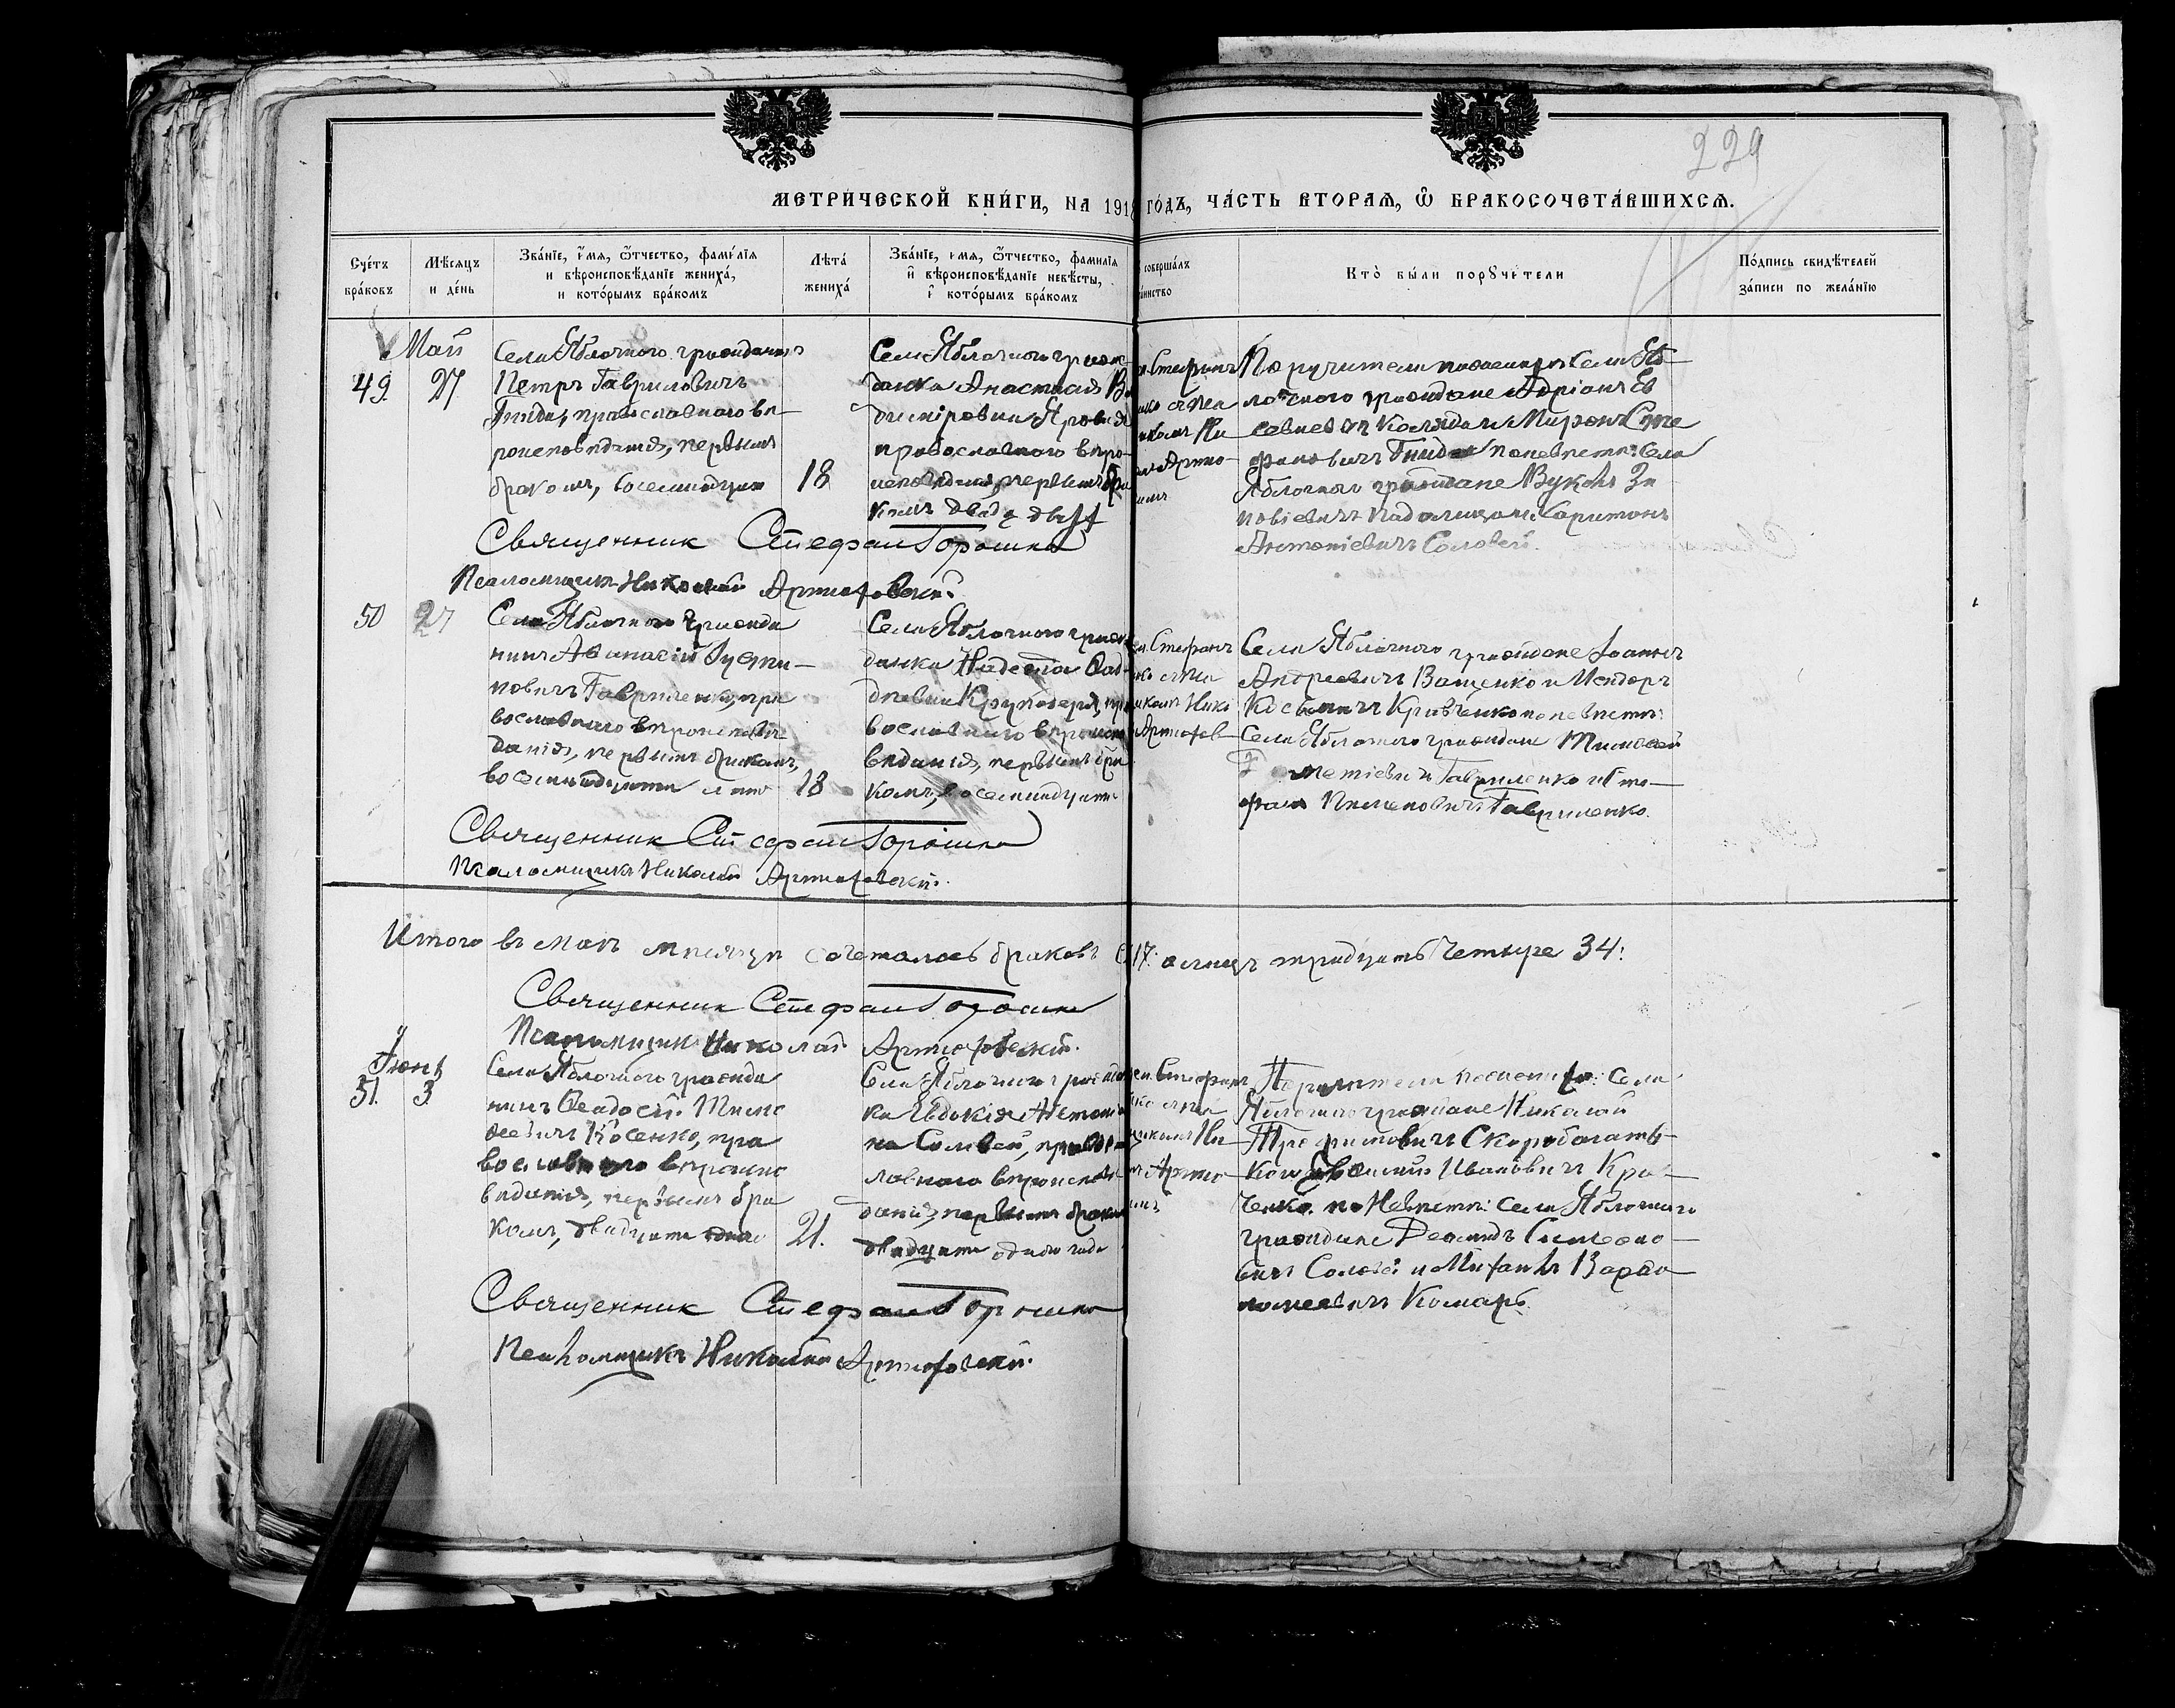 229
МЕТРИЧЕСКОЙ КНИ́ГИ, НА 1918 ГО́ДЪ, ЧА́СТЬ ВТОРАѦ, Ѿ БРАКОСОЧЕТА́ВШИХСѦ.
Сче́тъ бра́ковъ
Мѣ́сяцъ и де́нь
Зва́нїе, и́мя, ѻ҆́тчество, фами́лїя
и вѣроисповѣ́данїе жениха́,
и кото́рымъ бра́комъ
Лѣта́ жениха́
Зва́нїе, и́мя, ѻ҆́тчество, фамилїя
и҆ вѣроисповѣ́данїе невѣ́сты,
и҆ кото́рымъ бра́комъ
совершалъ
Кто̀ бы́ли порꙋчи́тели
По́дпись свидѣ́телей
за́писи по жела́нїю
Май
49. 27
Села Яблочного гражданинъ
Петръ Гавриловичъ
Гнида, православнаго вѣ-
роисповѣданія, первымъ
бракомъ, восемнадцати
18
Села Яблочного граж-
данка Анастасія Вла
диміровна Яровая
православнаго вѣро-
исповѣданія, первымъ бра
комъ двад
Стефанъ
Ни
Артю-
Поручители по женихѣ: села Яб-
лочного граждане Адріанъ Ев
савіевъ Калядаи Миронъ Сте
фановичъ Гнида по невѣстѣ: села
Яблочного граждане Вуколъ Зи
новіевичъ Падалицаи Харитонъ
Антоніевичъ Соловей.
Священник Стефан Горошко
Псаломщикъ Николай Артюховскій.
50 27
Села Яблочного гражда
нинъ Аѳанасій Іусти-
новичъ Гавриленко, пра
вославнаго вѣроисповѣ-
данія, первымъ бракомъ,
восемнадцати лѣтъ
18
Села Яблочного граж
данка Надежда Ѳад-
дѣевна Круподеря, пра
вославнаго вѣроиспо
вѣданія, первымъ бра
комъ, восемнадцати
Стефанъ
Нико
Артюхов
Села Яблочного граждане Іоаннъ
Андреевичъ Ващенко и Исидоръ
Косьмичъ Кравченко по невѣстѣ:
Села Яблочного граждане Тимоѳей
Гавриленко и Сте-
фанъ Пименовичъ Гавриленко.
Священник Стефан Горошко
Псаломщикъ Николай Артюховскій.
Итого въ маѣ мѣсяцѣ сочеталось браковъ 17. а лицъ тридцать четыре 34.
Священник Стефан Горошко
Псаломщик Николай Артюховскій.
Іюнь
51. 3.
Села Яблочного гражда
нинъ Ѳеодосій Тимо
ѳеевичъ Косенко, пра
вославнаго вѣроиспо
вѣданія, первымъ бра
комъ, двадцати одного
21.
Села Яблочного гражда
ка Евдокія Антоніев
на Соловей, правос
лавнаго вѣроисповѣ
данія, первымъ браком
двадцати одного года
Стефанъ
Ни
Артю
Поручители по женихѣ: села
Яблочного граждане Николай
Трофимовичъ Скоробагать-
ко и Василій Ивановичъ Крав-
ченко. по Невѣстѣ: села Яблочного
граждане Леонидъ Симеоно-
вичъ Соловей и Михаилъ Варѳо
ломеевичъ Комаръ.
Священник Стефан Горошко
Псаломщикъ Николай Артюховскій.